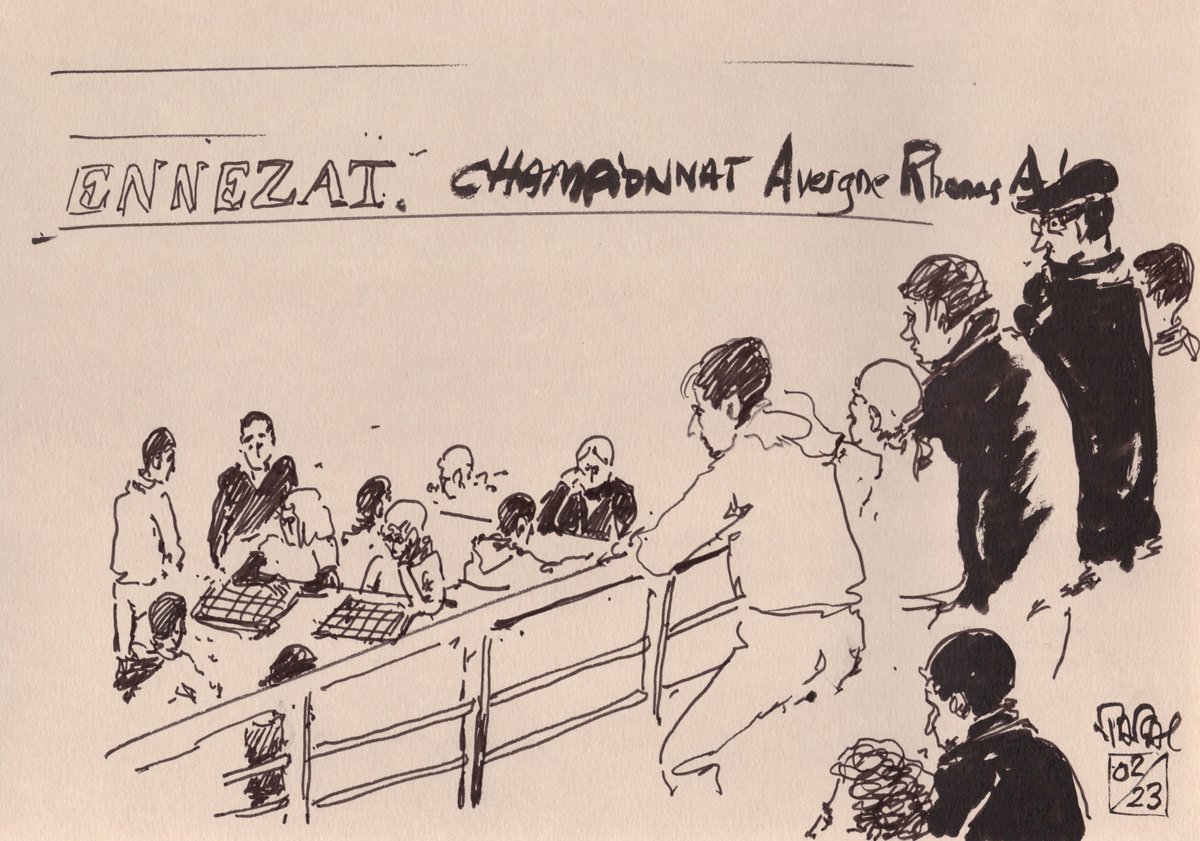 ENNEZAT. CHAMPIONNAT Avergne Rhones A
02/23